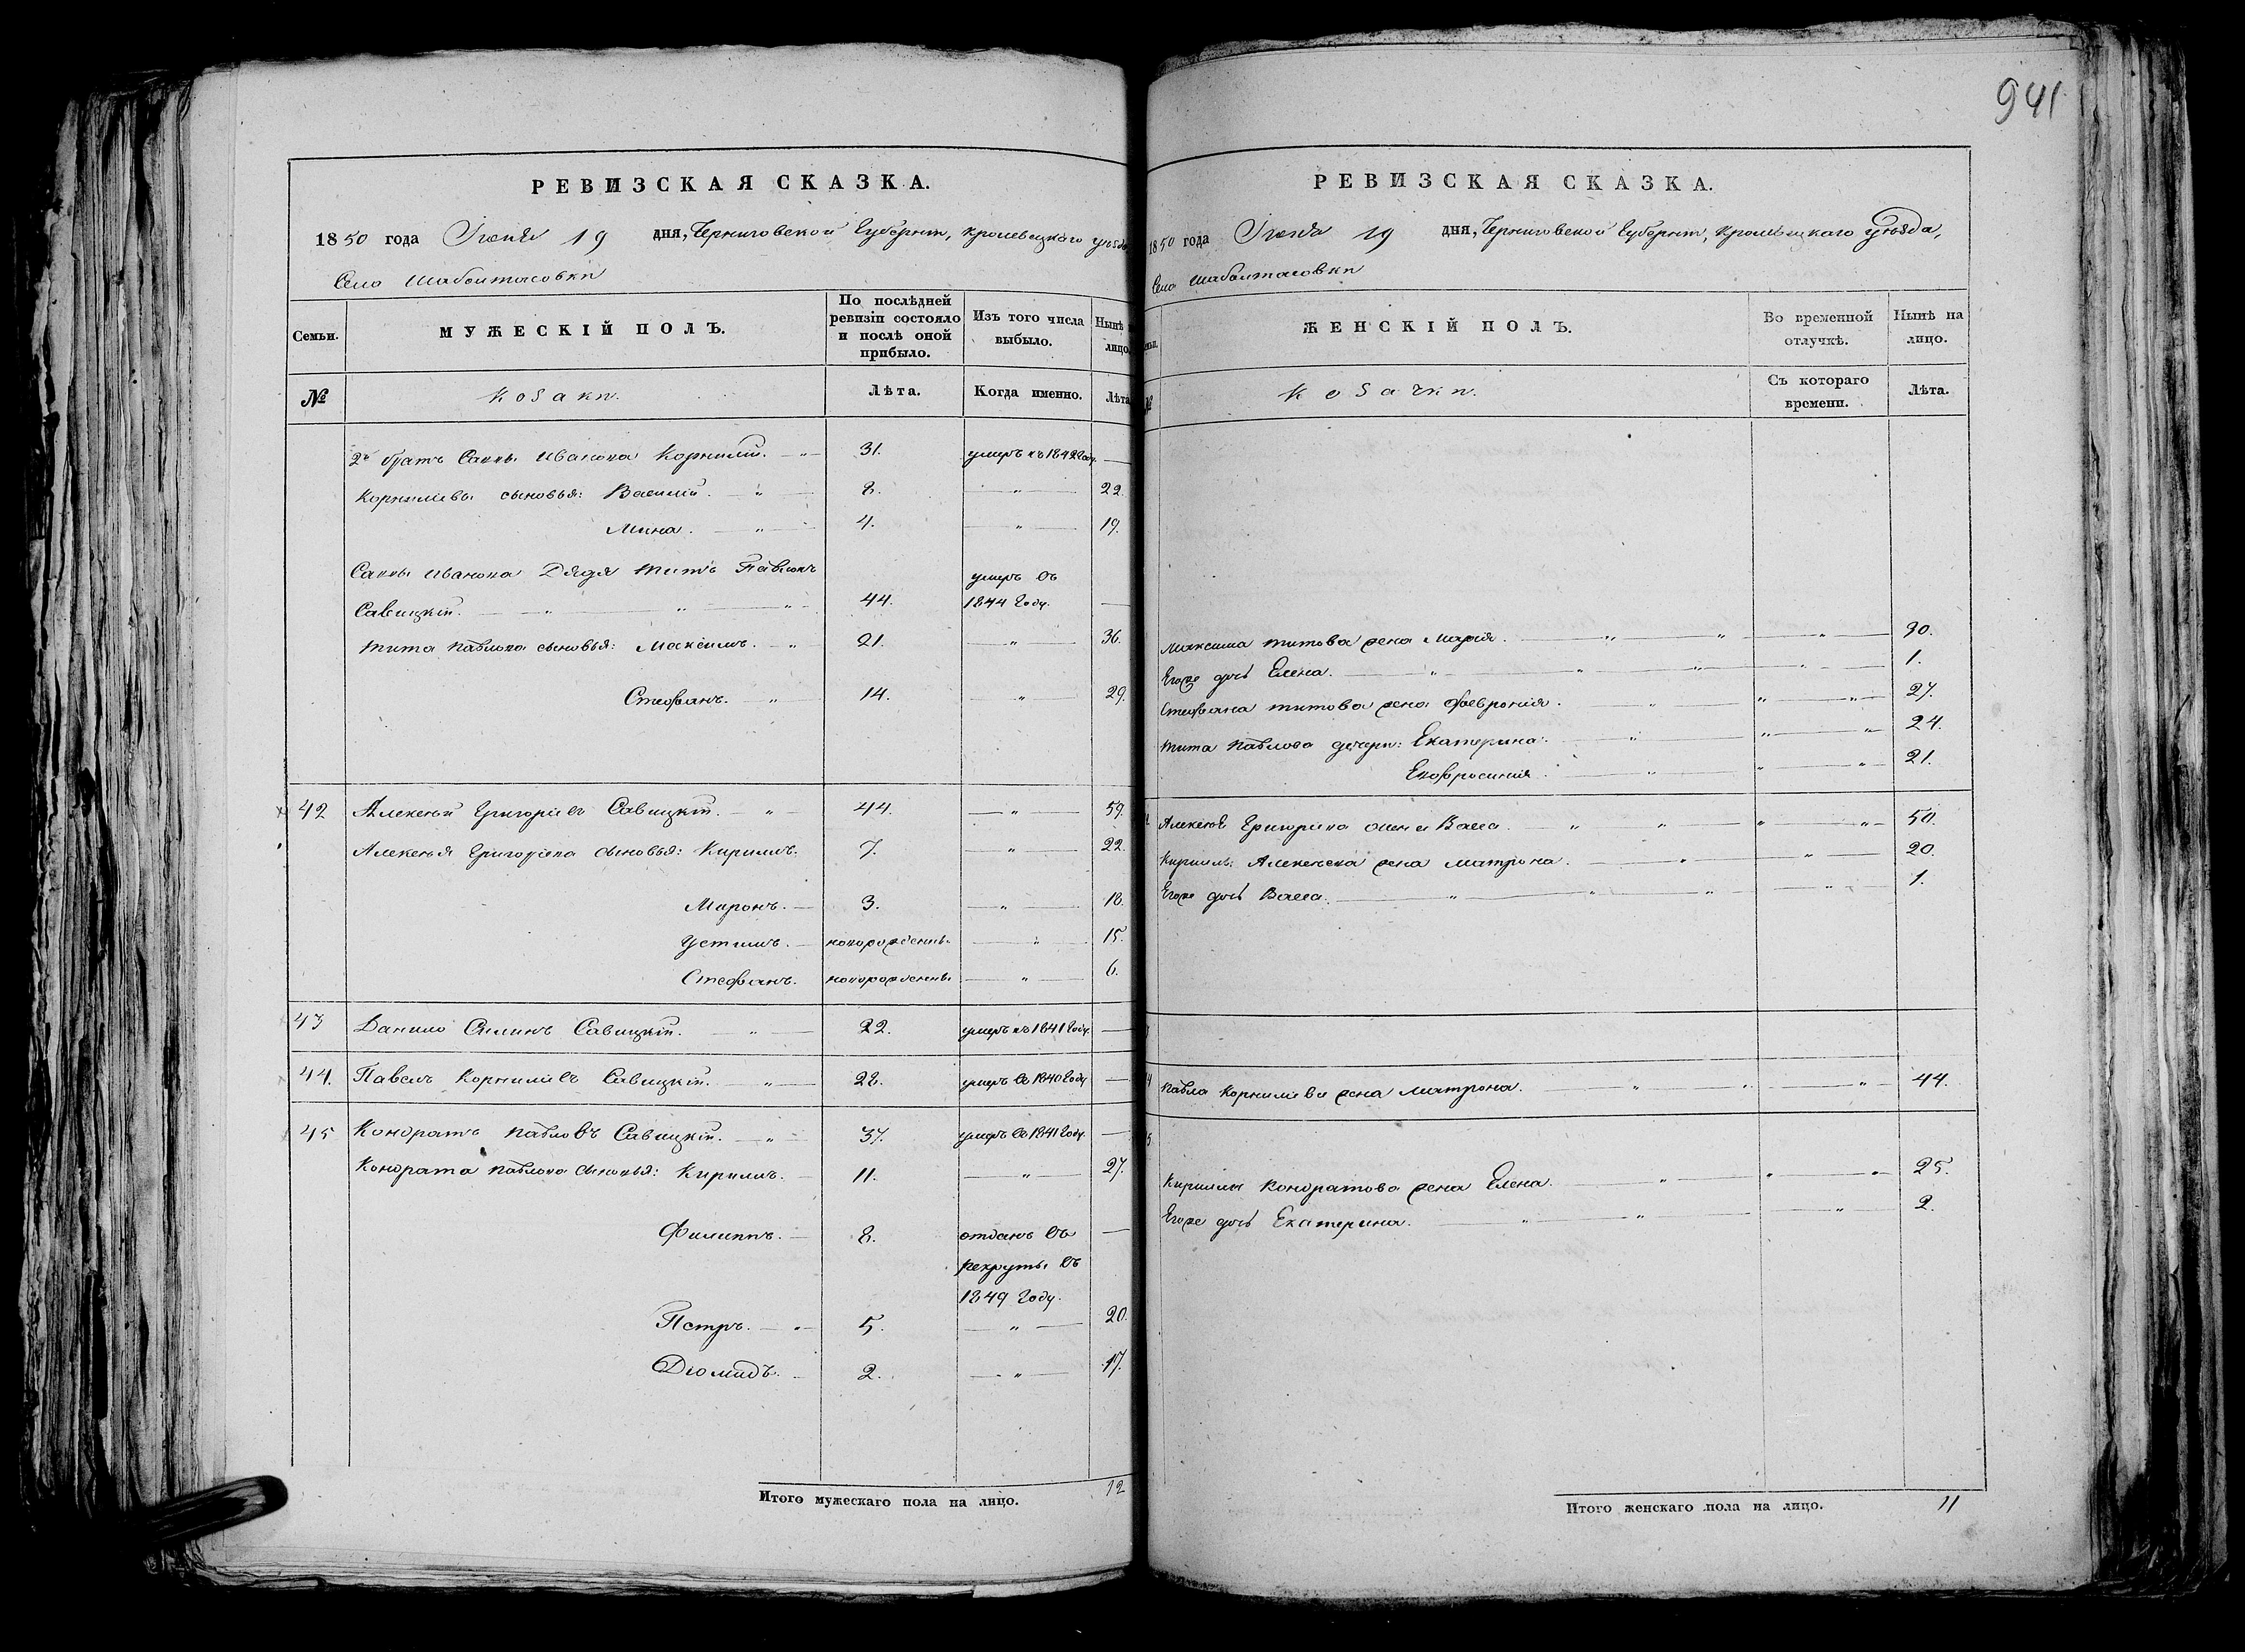 941
РЕВИЗСКАЯ СКАЗКА.
1850 года Іюня 19 дня, Черниговской Губерніи, Кролевецкаго уѣзда
Село Шаболтасовки
Семьи. МУЖЕСКІЙ ПОЛЪ. По послѣдней ревизіи состояло и послѣ оной прибыло. Изъ того числа выбыло. Нынѣ лицо.
№ Козаки. Лѣта. Когда именно. Лѣта
2й братъ Саввы Иванова Корнилій. 31. умеръ въ 1842 году. —
Корниліевы сыновья: Василій. 8. " 22.
Мина. 4. " 19.
Саввы Иванова Дядя Титъ Павловъ умеръ въ
Савицкій. 44. 1844 году. —
Тита Павлова сыновья: Максимъ. 21. " 36.
Стефанъ. 14. " 29.
42 Алексѣй Григоріевъ Савицкій. 44. " 59.
Алексѣя Григоріева сыновья: Кирилъ. 7. " 22.
Миронъ. 3. " 18.
Устимъ. новорожденъ. " 15.
Стефанъ. новорожденъ. " 6.
43 Данило Савицкій. 22. умеръ въ 1841 году. —
44. Павелъ Корниліевъ Савицкій. 28. умеръ въ 1840 году —
45 Кондратъ Павловъ Савицкій. 37. умеръ въ 1841 году. —
Кондрата Павлова сыновья: Кирилъ. 11. " 27.
Филиппъ. 8. отданъ въ —
рекруты въ
1849 году.
Петръ. 5. " 20.
Дюмидъ. 2. " 17.
Итого мужескаго пола на лицо. 12
РЕВИЗСКАЯ СКАЗКА.
1850 года Іюня 19 дня, Черниговской Губерніи, Кролевецкаго уѣзда,
Село Шаболтасовки
ЖЕНСКІЙ ПОЛЪ. Во временной отлучкѣ. Нынѣ на лицо.
№ Козачки. Съ котораго времени. Лѣта.
Максима Титова жена Марія. " 30.
Егоже дочь Елена. " 1.
Стефана Титова жена Февронія. " 27.
Тита Павлова дочери: Екатерина. " 24.
Ефросинія. " 21.
Алексѣя Григоріева жена Васса. " 50.
Кирилы Алексѣева жена Матрона. " 20.
Егоже дочь Васса. " 1.
Павла Корниліева жена Матрона. " 44.
Кирилы Кондратова жена Елена. " 25.
Егоже дочь Екатерина. " 2.
Итого женскаго пола на лицо. 11